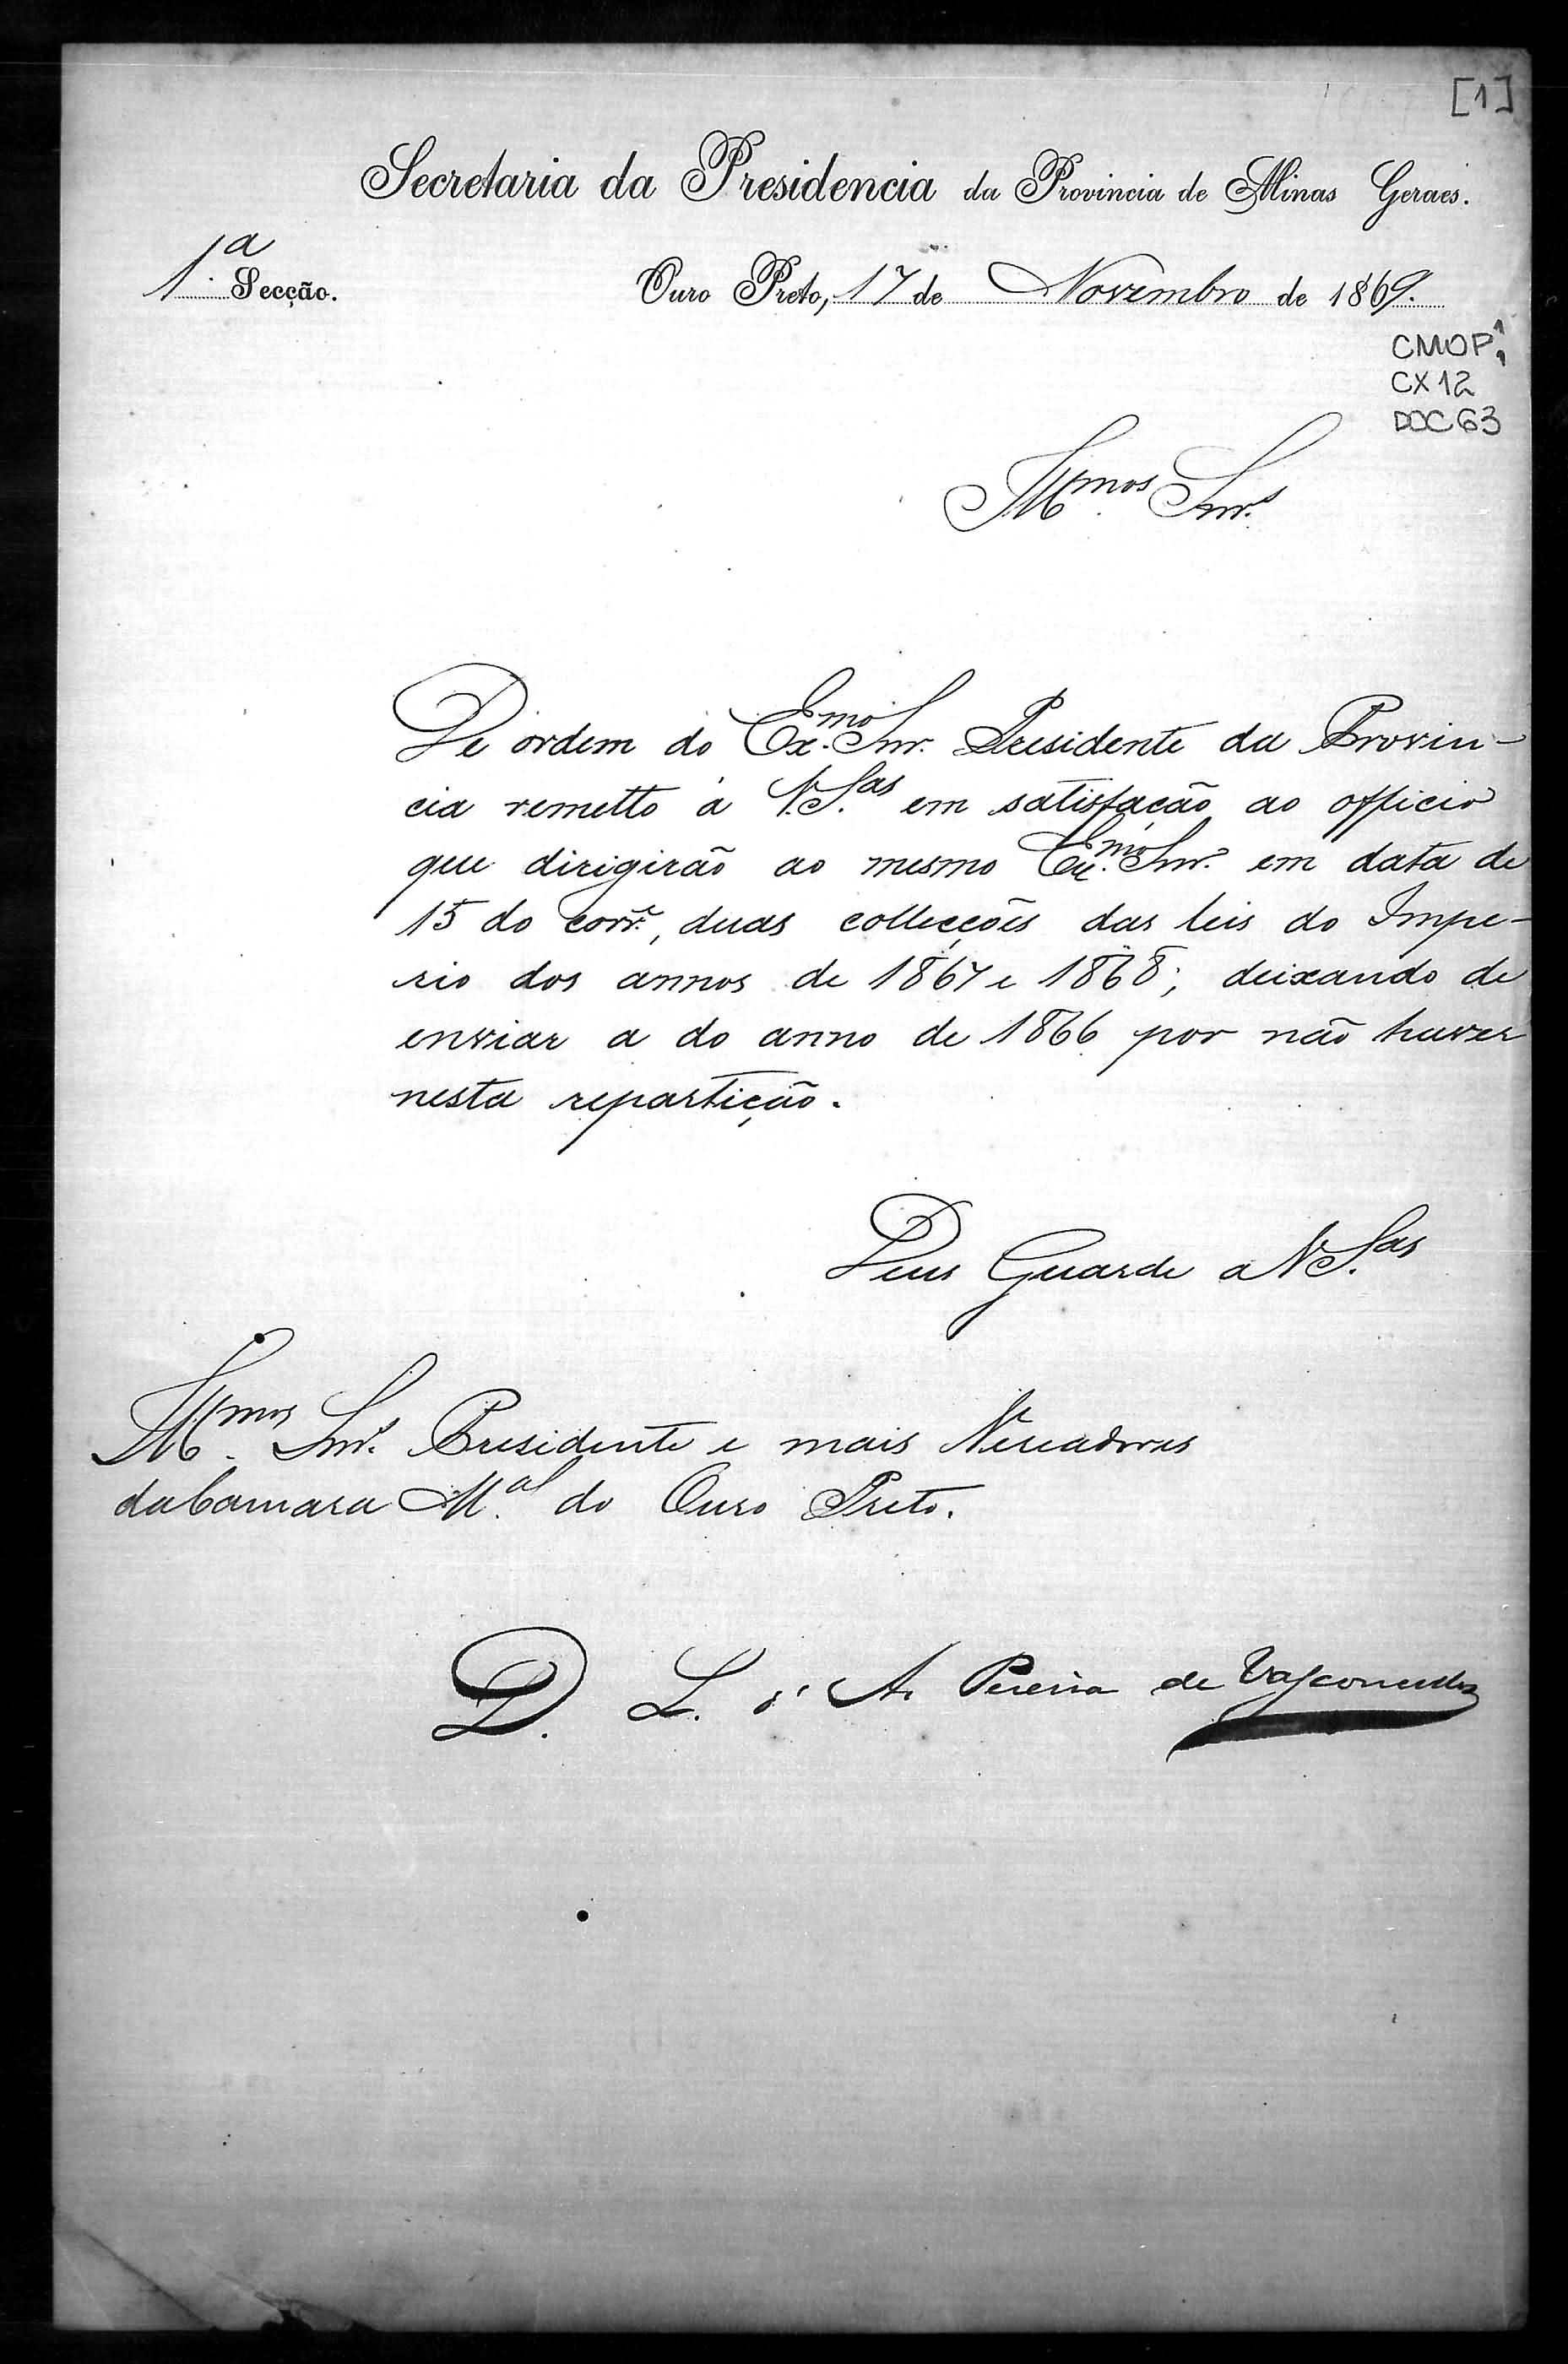 [1]
Secretaria da Presidencia da Provincia de Minas Geraes.
1.ª Secção.
Ouro Preto, 17 de Novembro de 1869.
CMOP 1/1
CX 12
DOC 63
Ill.mos Snr.s
De ordem do Ex.mo Snr. Presidente da Provin-
cia remetto á V.S.as em satisfação ao officio
que dirigirão ao mesmo Ex.mo Snr. em data de
15 do corr.e, duas collecções das leis do Impe-
rio dos annos de 1867 e 1868; deixando de
enviar a do anno de 1866 por não haver
nesta repartição.
Deus Guarde a V.S.as
Ill.mos Snr.s Presidente e mais Vereadores
da Camara M.al do Ouro Preto.
D. L. d'A. Pereira de Vasconcellos